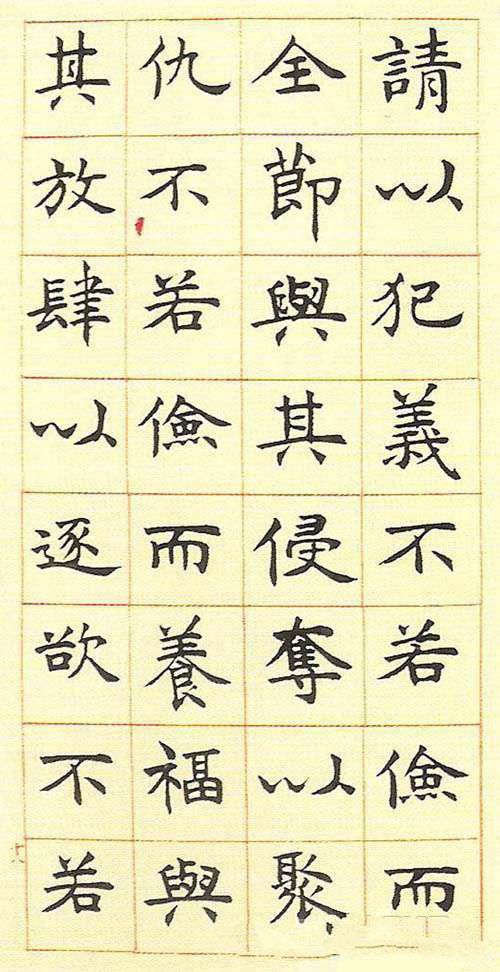 請以犯義不若儉而
全節與其侵奪以聚
仇不若儉而養福與
其放肆以逐欲不若